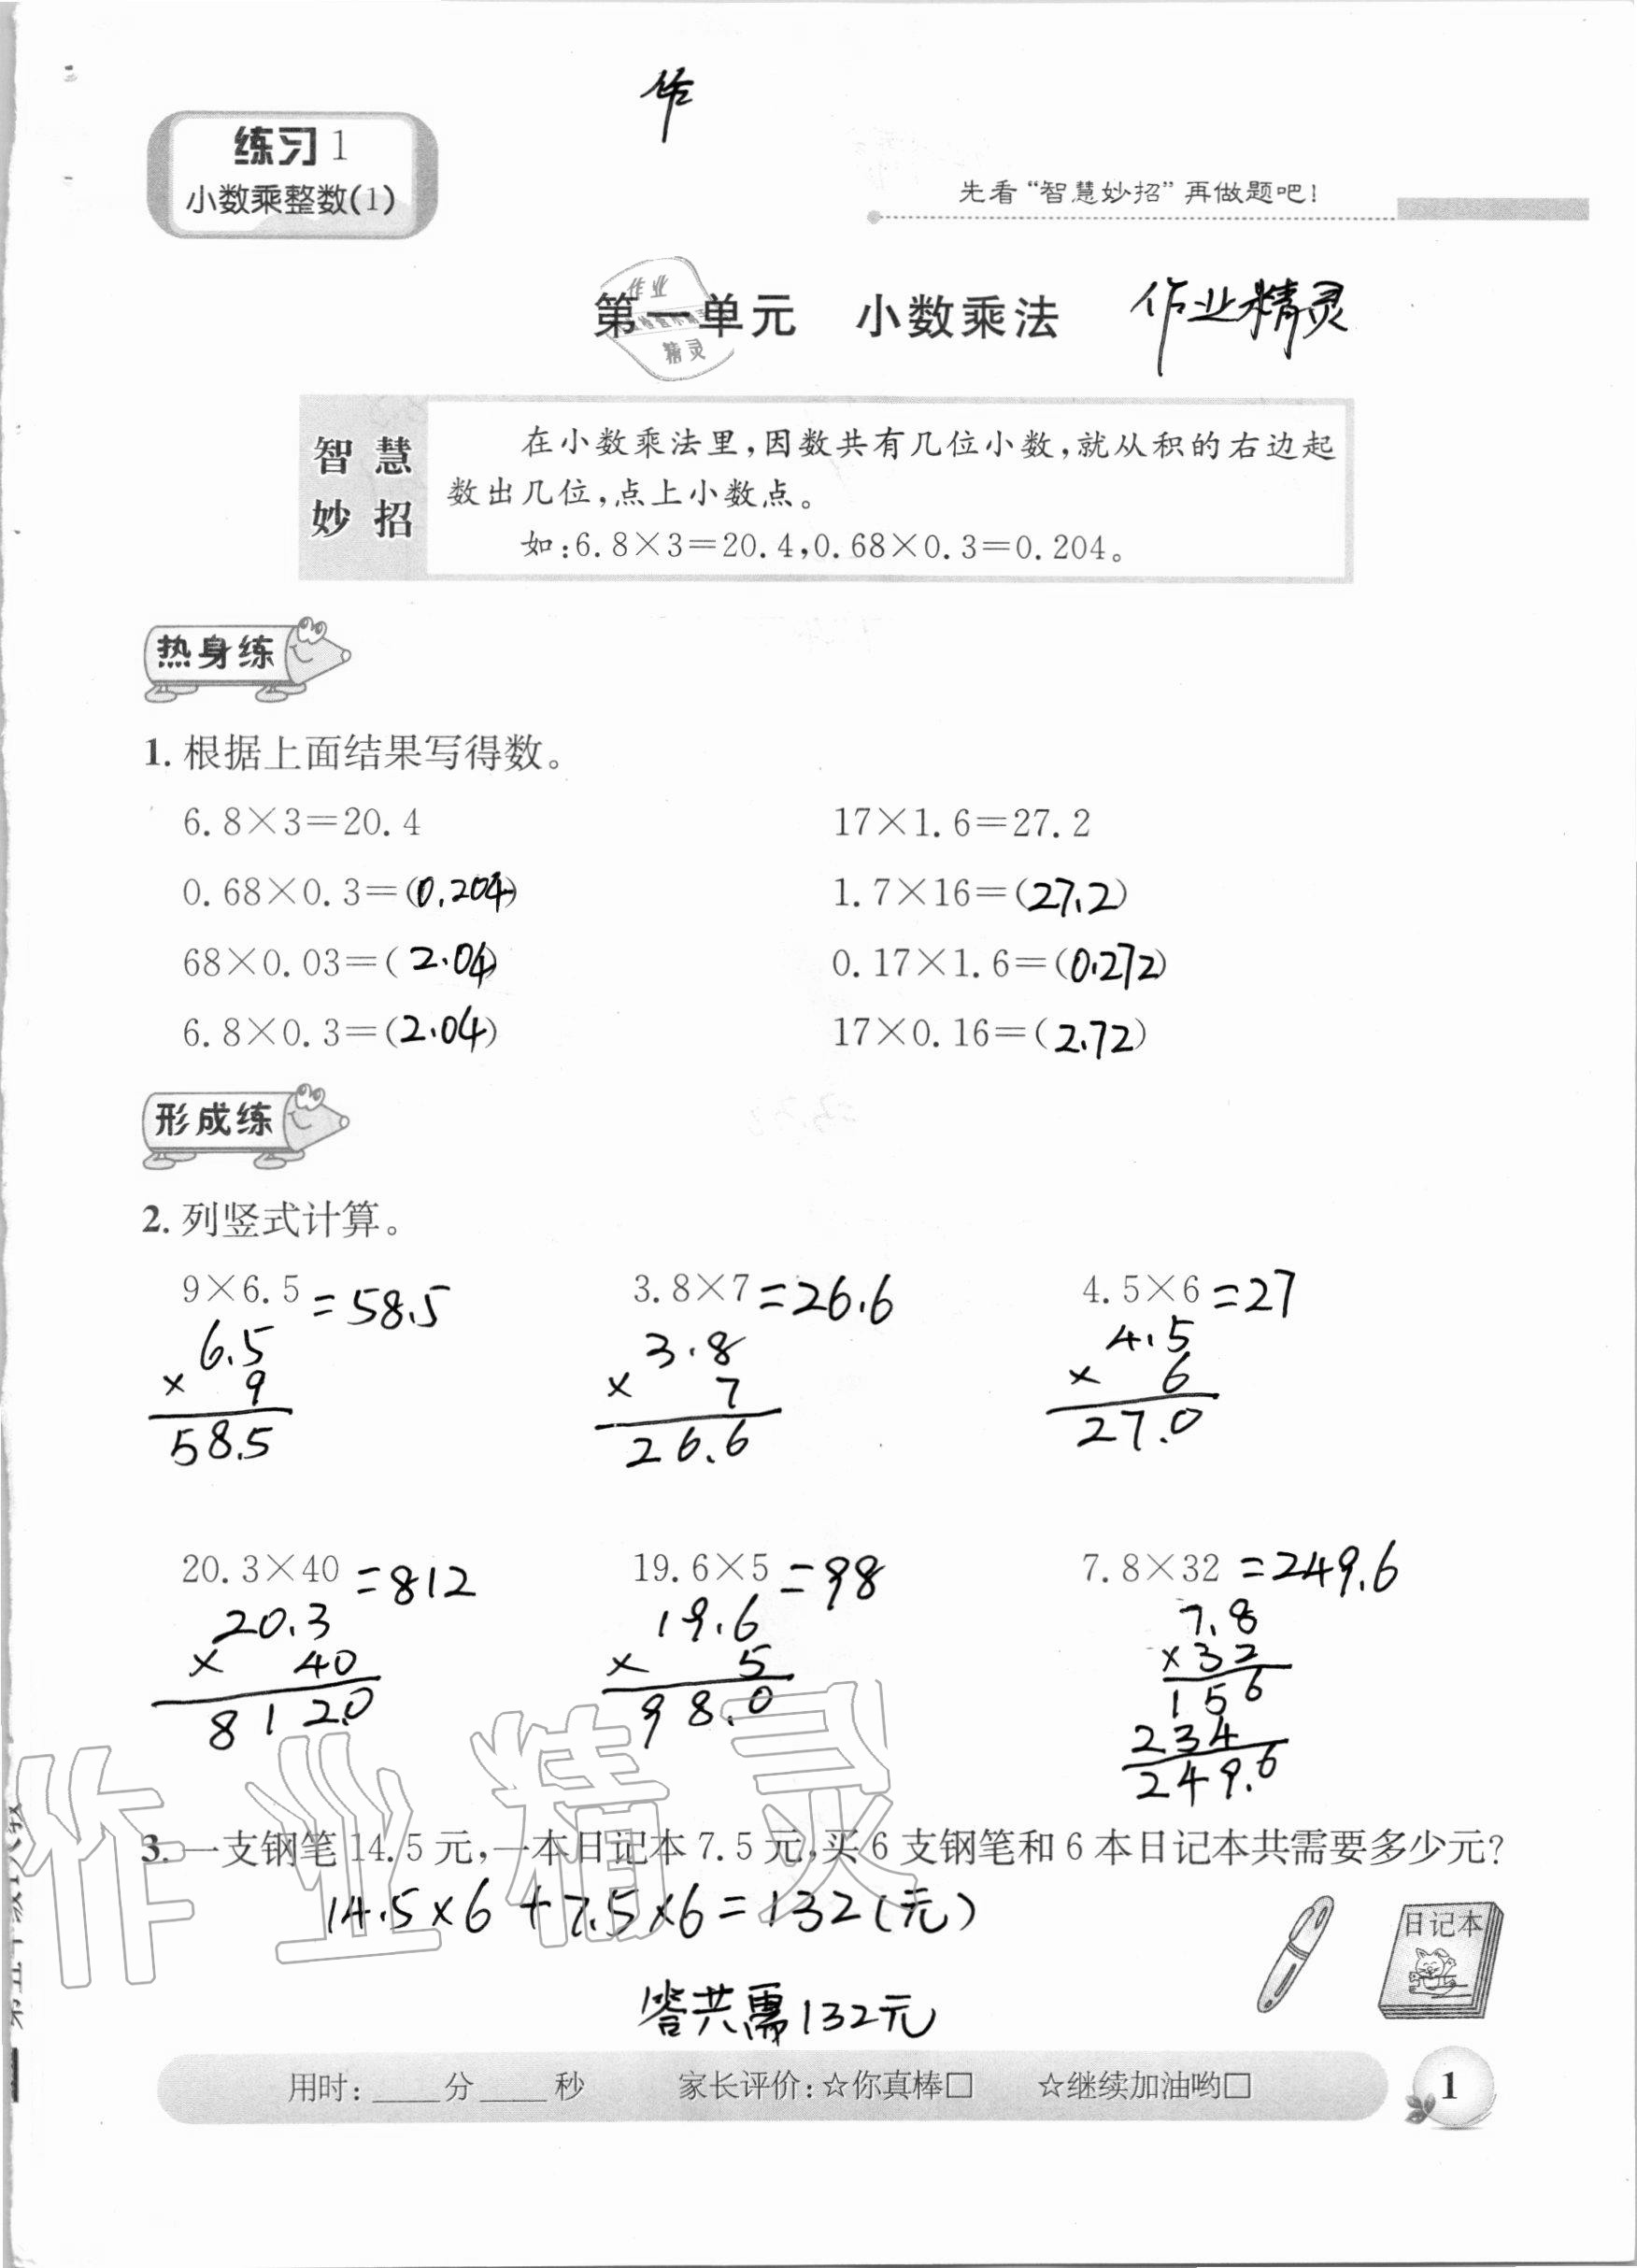 作
练习1
小数乘整数(1)
先看“智慧妙招”再做题吧!
作业
精灵
第一单元 小数乘法 作业精灵
智慧
妙招
在小数乘法里,因数共有几位小数,就从积的右边起
数出几位,点上小数点。
如:6.8×3=20.4,0.68×0.3=0.204。
热身练
1. 根据上面结果写得数。
6.8×3=20.4 17×1.6=27.2
0.68×0.3=(0.204) 1.7×16=(27.2)
68×0.03=(2.04) 0.17×1.6=(0.272)
6.8×0.3=(2.04) 17×0.16=(2.72)
形成练
2. 列竖式计算。
9×6.5=58.5 3.8×7=26.6 4.5×6=27
6.5 3.8 4.5
× 9 × 7 × 6
58.5 26.6 27.0
20.3×40=812 19.6×5=98 7.8×32=249.6
20.3 19.6 7.8
× 40 × 5 ×32
812.0 98.0 156
234
249.6
作业精灵
3. 一支钢笔14.5元,一本日记本7.5元,买6支钢笔和6本日记本共需要多少元?
14.5×6+7.5×6=132(元)
日记本
答共需132元
用时:____分____秒 家长评价:☆你真棒□ ☆继续加油哟□
1